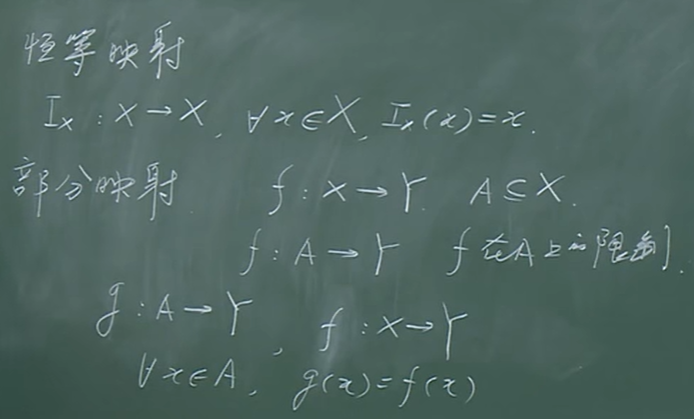 恒等映射
I_X : X → X, ∀x∈X, I_X(x)=x.
部分映射 f : X → Y. A⊆X.
f : A → Y f在A上的限制.
g : A → Y, f : X → Y
∀x∈A, g(x)=f(x)